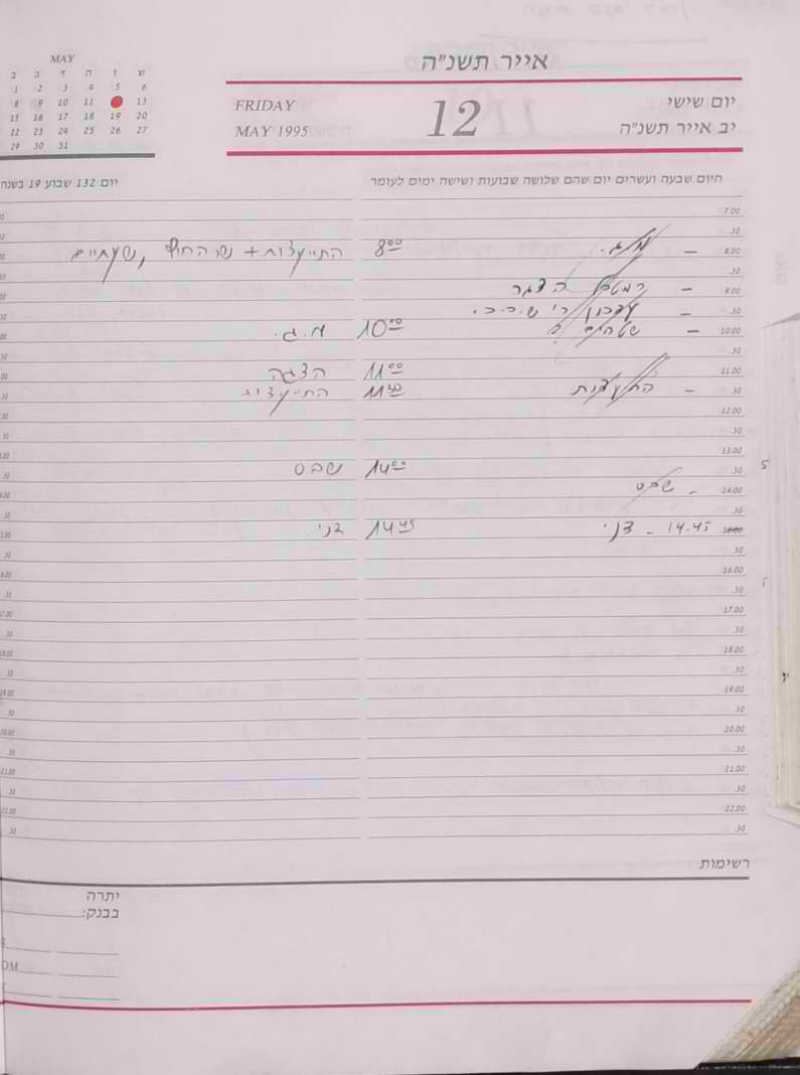 אייר תשנ״ה
MAY
ב ג ד ה ו ש
1 2 3 4 5 6
8 9 10 11 13
15 16 17 18 19 20
22 23 24 25 26 27
29 30 31
FRIDAY 12 יום שישי
MAY 1995 יב אייר תשנ״ה
היום שבעה ועשרים יום שהם שלושה שבועות ושישה ימים לעומר
יום 132 שבוע 19 בשנה
7.00
.30
8.00 – מ.ג. 8⁰⁰ התייעצות + שר החוץ, שעתיים
.30
9.00 – הצגה
.30 –
10.00 – שטחים 10⁰⁰ מ.ג.
.30
11.00 11⁰⁰ הצגה
.30 – התיעצות 11³⁰ התייעצות
12.00
.30
13.00
.30 14⁰⁰ שבס
14.00 – שבס
.30
15.00 14.45 – דני 14⁴⁵ דני
.30
16.00
.30
17.00
.30
18.00
.30
19.00
.30
20.00
.30
21.00
.30
22.00
.30
רשימות
יתרה
בבנק:
DM